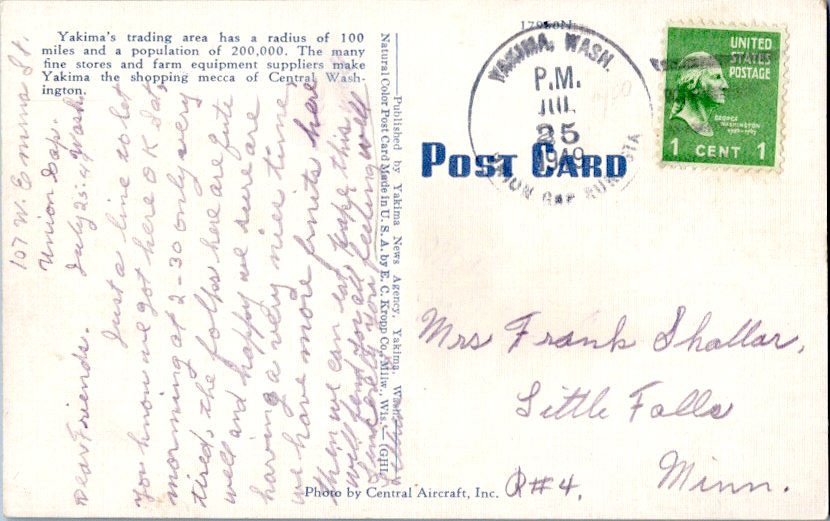 Yakima's trading area has a radius of 100
miles and a population of 200,000. The many
fine stores and farm equipment suppliers make
Yakima the shopping mecca of Central Wash-
ington.
107 W. Emma St.
Union Gap.
July 25-49 Wash.
Dear Friends.
Just a line to let
you know we got here OK Sat,
morning at 2-30 only very
tired, the folks here are quite
well and happy we sure are
having a very nice time,
we have more fruits here
then we can eat, hope this
will find you all feeling well
Published by Yakima News Agency, Yakima, Wash.
Natural Color Post Card Made in U. S. A. by E. C. Kropp Co., Milw., Wis.
Photo by Central Aircraft, Inc.
YAKIMA, WASH.
P.M.
JUL
25
1949
UNION GAP RUR. STA
POST CARD
UNITED
STATES
POSTAGE
GEORGE
WASHINGTON
1 CENT 1
Mrs Frank Shallar,
Little Falls
R#4. Minn.